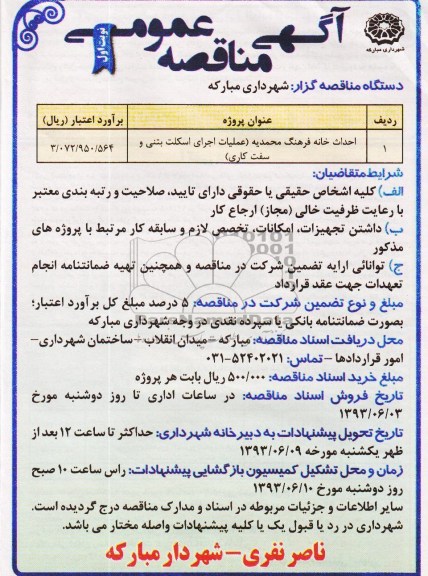 آگهی مناقصه عمومی
نوبت اول
شهرداری مبارکه
دستگاه مناقصه گزار: شهرداری مبارکه
ردیف عنوان پروژه برآورد اعتبار (ریال)
۱ احداث خانه فرهنگ محمدیه (عملیات اجرای اسکلت بتنی و سفت کاری) ۳/۰۷۲/۹۵۰/۵۶۴
شرایط متقاضیان:
الف) کلیه اشخاص حقیقی یا حقوقی دارای تایید، صلاحیت و رتبه بندی معتبر
با رعایت ظرفیت خالی (مجاز) ارجاع کار
ب) داشتن تجهیزات، امکانات، تخصص لازم و سابقه کار مرتبط با پروژه های
مذکور
ج) توانائی ارایه تضمین شرکت در مناقصه و همچنین تهیه ضمانتنامه انجام
تعهدات جهت عقد قرارداد
مبلغ و نوع تضمین شرکت در مناقصه: ۵ درصد مبلغ کل برآورد اعتبار؛
بصورت ضمانتنامه بانکی یا سپرده نقدی در وجه شهرداری مبارکه
محل دریافت اسناد مناقصه: مبارکه – میدان انقلاب – ساختمان شهرداری –
امور قراردادها – تماس: ۵۲۴۰۲۰۲۱-۰۳۱
مبلغ خرید اسناد مناقصه: ۵۰۰/۰۰۰ ریال بابت هر پروژه
تاریخ فروش اسناد مناقصه: در ساعات اداری تا روز دوشنبه مورخ
۱۳۹۳/۰۶/۰۳
تاریخ تحویل پیشنهادات به دبیرخانه شهرداری: حداکثر تا ساعت ۱۲ بعد از
ظهر یکشنبه مورخه ۱۳۹۳/۰۶/۰۹
زمان و محل تشکیل کمیسیون بازگشایی پیشنهادات: راس ساعت ۱۰ صبح
روز دوشنبه مورخ ۱۳۹۳/۰۶/۱۰
سایر اطلاعات و جزئیات مربوطه در اسناد و مدارک مناقصه درج گردیده است.
شهرداری در رد یا قبول یک یا کلیه پیشنهادات واصله مختار می باشد.
ناصر نفری – شهردار مبارکه